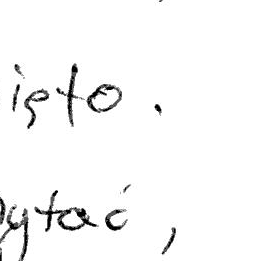 ięto.
pytać,